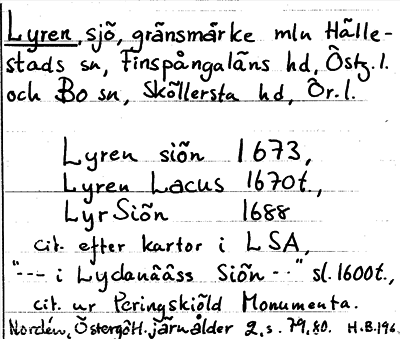 Lyren, sjö, gränsmärke mln Hälle-
stads sn, Finspångaläns hd, Östg.l.
och Bo sn, Sköllersta hd, Ör.l.
Lyren siön 1673,
Lyren Lacus 1670t.,
LyrSiön 1688
cit. efter kartor i LSA,
"--- i Lydanååss Siön --" sl. 1600t.,
cit. ur Peringskiöld Monumenta.
Nordén, Östergötl. järnålder 2, s. 79, 80. H.B. 196